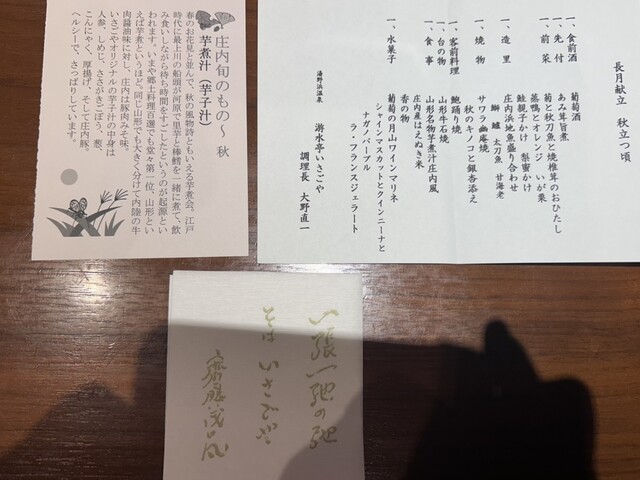 長月献立 秋立つ頃
一、食前酒 葡萄酒
一、先付 あみ茸旨煮
一、前菜 菊と秋刀魚と焼椎茸のおひたし
蒸鴨とオレンジ いが栗
鮭親子かけ 梨蜜かけ
一、造里 庄内浜地魚盛り合わせ
鰤 鱸 太刀魚 甘海老
一、焼物 サワラ幽庵焼
秋のキノコと銀杏添え
一、客前料理 鮑踊り焼
一、台の物 山形牛石焼
一、食事 山形名物芋煮汁庄内風
庄内産はえぬき米
香の物
一、水菓子 葡萄の月山ワインマリネ
シャインマスカットとクインニーナと
ナガノパープル
ラ・フランスジェラート
湯野浜温泉
游水亭いさごや
調理長 大野直一
庄内旬のもの～ 秋
芋煮汁(芋子汁)
春のお花見と並んで、秋の風物詩ともいえる芋煮会。江戸
時代に最上川の船頭が河原で里芋と棒鱈を一緒に煮て、飲
み食いしながら待ち時間をすごしたというのが起源とい
われます。いまや郷土料理百選でも堂々第一位、山形とい
えば芋煮というほど。同じ山形でも大きく分けて内陸の牛
肉醤油味に対し、庄内は豚肉みそ味、
いさごやオリジナルの芋子汁の中身は
人参、しめじ、ささがきごぼう、葱、
こんにゃく、厚揚げ、そして庄内豚。
ヘルシーで、さっぱりしています。
一張一弛の弛
そは いさごや
齋藤茂